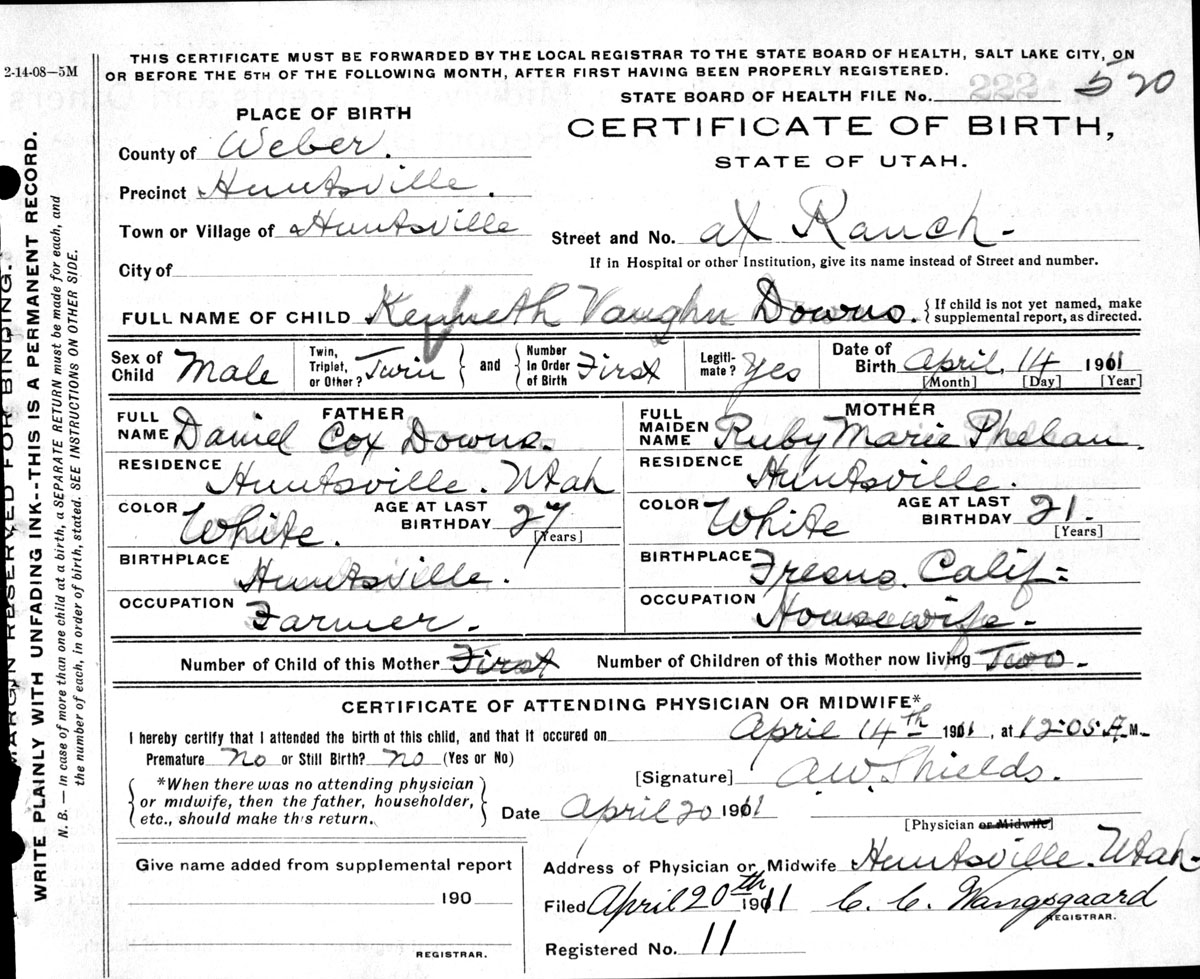 2-14-08—5M
THIS CERTIFICATE MUST BE FORWARDED BY THE LOCAL REGISTRAR TO THE STATE BOARD OF HEALTH, SALT LAKE CITY, ON
OR BEFORE THE 5TH OF THE FOLLOWING MONTH, AFTER FIRST HAVING BEEN PROPERLY REGISTERED.
STATE BOARD OF HEALTH FILE No. 222 520
PLACE OF BIRTH
CERTIFICATE OF BIRTH,
STATE OF UTAH.
County of Weber.
Precinct Huntsville.
Town or Village of Huntsville
Street and No. at Ranch-
City of
If in Hospital or other Institution, give its name instead of Street and number.
FULL NAME OF CHILD Kenneth Vaughn Downs. {If child is not yet named, make
supplemental report, as directed.
Sex of Child Male
Twin, Triplet, or Other? Twin } and { Number In Order of Birth First
Legiti-mate? Yes
Date of Birth April 14 1911
[Month] [Day] [Year]
FATHER
FULL NAME Daniel Cox Downs.
RESIDENCE Huntsville. Utah
COLOR White. AGE AT LAST BIRTHDAY 27 [Years]
BIRTHPLACE Huntsville.
OCCUPATION Farmer.
MOTHER
FULL MAIDEN NAME Ruby Marie Phelan
RESIDENCE Huntsville.
COLOR White AGE AT LAST BIRTHDAY 21. [Years]
BIRTHPLACE Fresno. Calif=
OCCUPATION Housewife-
Number of Child of this Mother First Number of Children of this Mother now living Two-
CERTIFICATE OF ATTENDING PHYSICIAN OR MIDWIFE*
I hereby certify that I attended the birth of this child, and that it occured on April 14th 1911, at 12-05 A.M.
Premature No or Still Birth? No (Yes or No)
{*When there was no attending physician
or midwife, then the father, householder,
etc., should make this return.}
[Signature] A.W. Shields.
Date April 20 1911
[Physician or Midwife]
Give name added from supplemental report
190
REGISTRAR.
Address of Physician or Midwife Huntsville. Utah-
Filed April 20th 1911 C. C. Wangsgaard
REGISTRAR.
Registered No. 11
MARGIN RESERVED FOR BINDING.
WRITE PLAINLY WITH UNFADING INK--THIS IS A PERMANENT RECORD.
N. B. — In case of more than one child at a birth, a SEPARATE RETURN must be made for each, and
the number of each, in order of birth, stated. SEE INSTRUCTIONS ON OTHER SIDE.